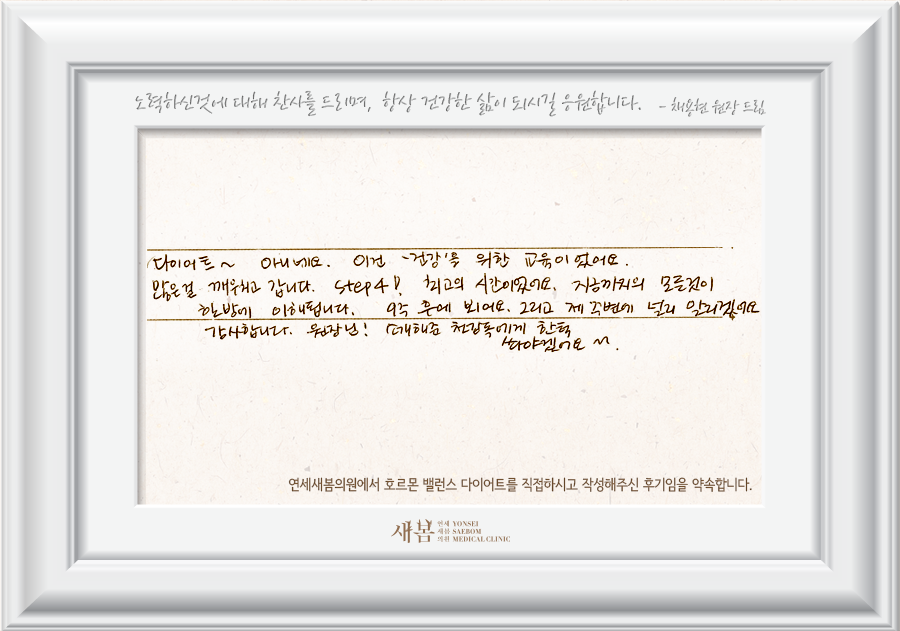 노력하신것에 대해 찬사를 드리며, 항상 건강한 삶이 되시길 응원합니다. - 채용현 원장 드림
다이어트~ 아니네요. 이건 '건강'을 위한 교육이었어요.
많은걸 깨우치고 갑니다. step4! 최고의 시간이었어요. 지금까지의 모든것이
한방에 이해됩니다. 9주 후에 뵈어요. 그리고 제 주변에 널리 알리겠어요
감사합니다. 원장님! 소개해준 친구에게 한턱
쏴야겠어요~.
연세새봄의원에서 호르몬 밸런스 다이어트를 직접하시고 작성해주신 후기임을 약속합니다.
새봄 연세 새봄 의원 YONSEI SAEBOM MEDICAL CLINIC